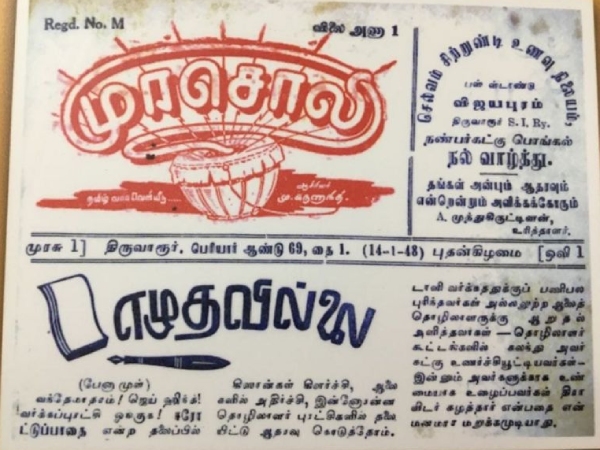 Regd. No. M
விலை அணா 1
முரசொலி
தமிழ் வார வெளியீடு
ஆசிரியர்
மு. கருணாநிதி
செல்வம் சிற்றுண்டி உணவு நிலையம்,
பஸ் ஸ்டாண்டு
விஜயபுரம்
திருவாரூர் S. I. Ry.
நண்பர்கட்கு பொங்கல்
நல் வாழ்த்து.
தங்கள் அன்பும் ஆதரவும்
என்றென்றும் அளிக்கக்கோரும்
A. முத்துகிருட்டினன்,
உரித்தாளர்.
முரசு 1] திருவாரூர். பெரியார் ஆண்டு 69, தை 1. (14-1-48) புதன்கிழமை [ஒலி 1
எழுதவில்லை
(பேனா முள்)
வந்தேமாதரம்! ஜெய் ஹிந்த்!
வர்க்கப்புரட்சி ஓங்குக! ஈரோ
ட்டுப்பாதை என்ற தலைப்பில்
கிஸான்கள் கிளர்ச்சி, ஆலை
களில் அதிர்ச்சி, இன்னோன்ன
தொழிலாளர் புரட்சிகளில் தலை
யிட்டு ஆதரவு கொடுத்தோம்.
டாளி வர்க்கத்துக்குப் பணிபல
புரிந்தவர்கள் அல்லலுற்ற ஆலைத்
தொழிலாளருக்கு ஆறுதல்
அளித்தவர்கள் — தொழிலாளர்
கூட்டங்களில் கலந்து அவர்
கட்கு உணர்ச்சியூட்டியவர்கள்—
இன்னும் அவர்களுக்காக உண்
மையாக உழைப்பவர்கள் திரா
விடர் கழத்தார் என்பதை என்
மனமார மறுக்கமுடியாது.